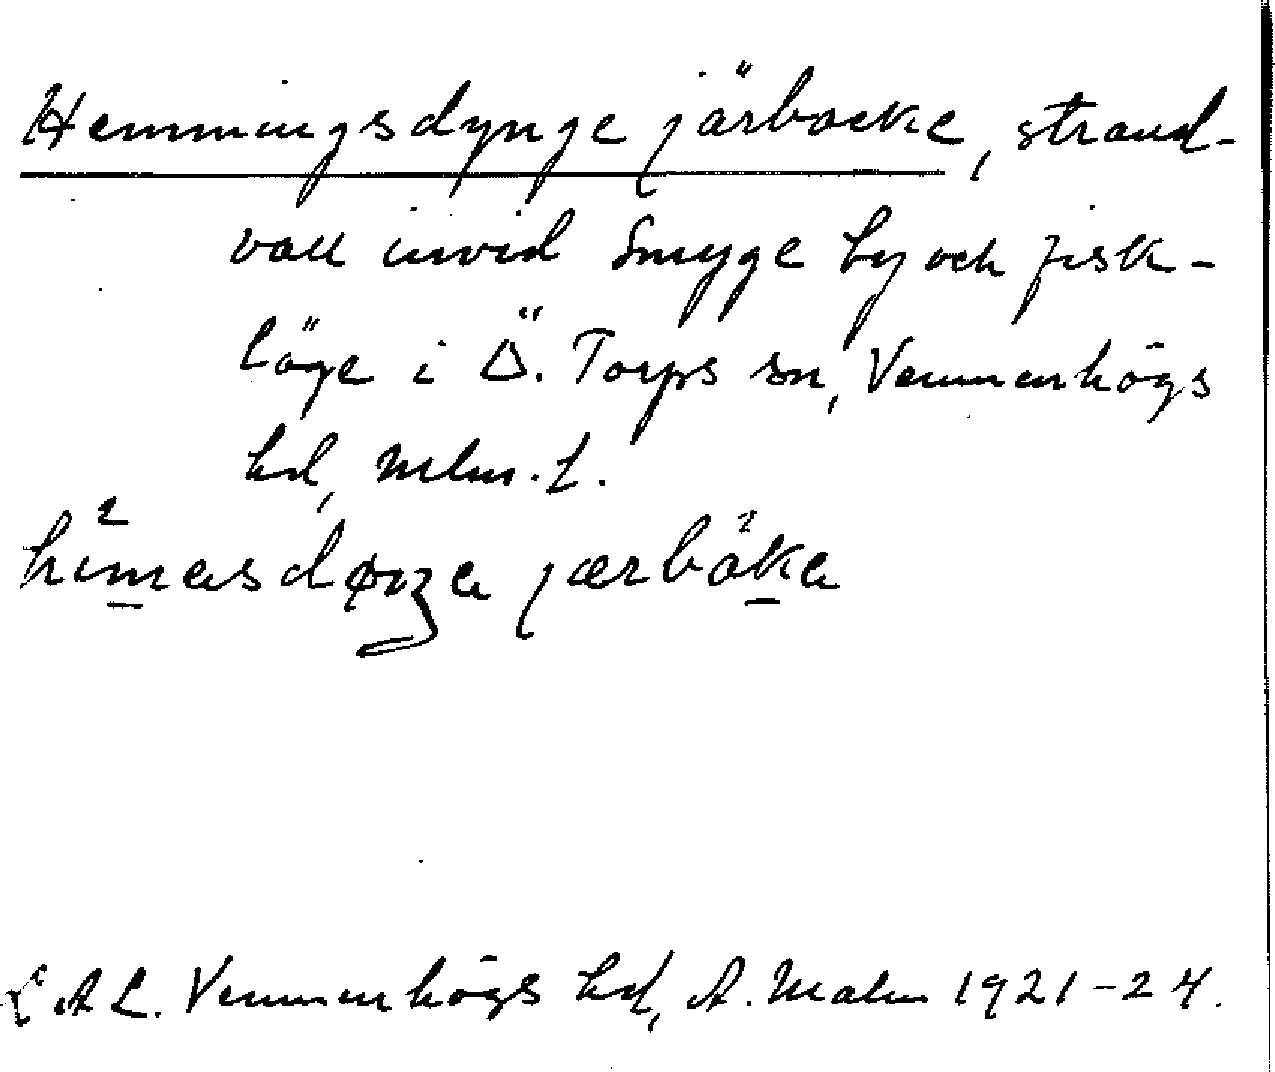 Hemmingsdynge järbacke, strand-
vall invid Smyge by och fisk-
läge i Ö. Torps sn, Vemmenhögs
hd, Mlm. l.
L A L. Vemmenhögs hd, A. Malm 1921-24.